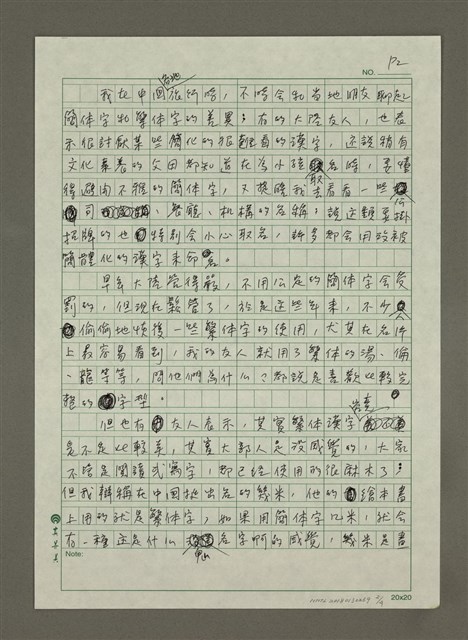 P2
NO.
各地
我在中國旅行時，不時会和當地朋友聊起
簡体字和繁体字的差異；有的大陸友人，也表
示很討厭某些簡化的很難看的漢字，还說稍有
文化素養的父母都知道在為小孩取名時，要懂
得避用不雅的簡体字，又提醒我去看看一些公
司、餐廳、机構的名稱；說這類要掛
招牌的也特別会小心取名，許多都会用没被
簡體化的漢字来命名。
早年大陸管得嚴，不用公定的簡体字会受
罰的，但現在鬆管了，於是这些年来，不少人
偷偷地恢復一些繁体字的使用，尤其在名片
上最容易看到，我的友人就用了繁体的湯、倫
、龍等等，問他們為什么？都說是喜歡比較完
整的字型。
但也有友人表示，其實繁体漢字究竟
是不是比較美，其實大部人是没感覺的，大家
不管是閱讀或寫字，都已經使用的很麻木了；
但我轉稱在中國也出名的幾米，他的繪本書
上用的就是繁体字，如果用簡体字几米，就会
有一種这是什么鬼名字啊的感覺，幾米是畫
Note:
20x20